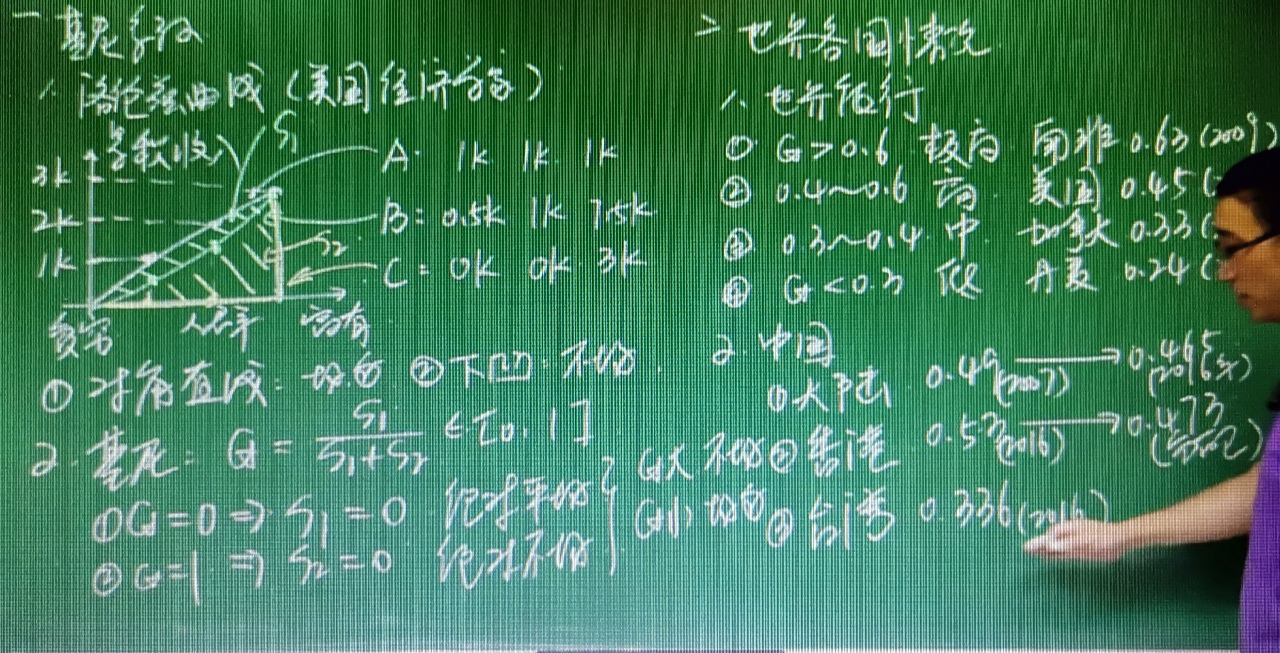 一 基尼系数
1. 洛伦兹曲线（美国经济学家）
累积收入
S1
3k
2k
1k
S2
贫穷 人口率 富有
A: 1k 1k 1k
B: 0.5k 1k 1.5k
C: 0k 0k 3k
① 对角直线: 均匀 ② 下凹: 不均
2. 基尼: G = S1/(S1+S2) ∈ [0, 1]
① G=0 ⇒ S1=0 绝对平均
② G=1 ⇒ S2=0 绝对不均
G大 不均
G小 均匀
二 世界各国情况
1. 世界银行
① G>0.6 极高 南非 0.63(2009)
② 0.4~0.6 高 美国 0.45(
③ 0.3~0.4 中 加拿大 0.33(
④ G<0.3 低 丹麦 0.24(
2. 中国
① 大陆 0.49(2007) → 0.465(2016年)
② 香港 0.53(2016) → 0.473
③ 台湾 0.336(2016)